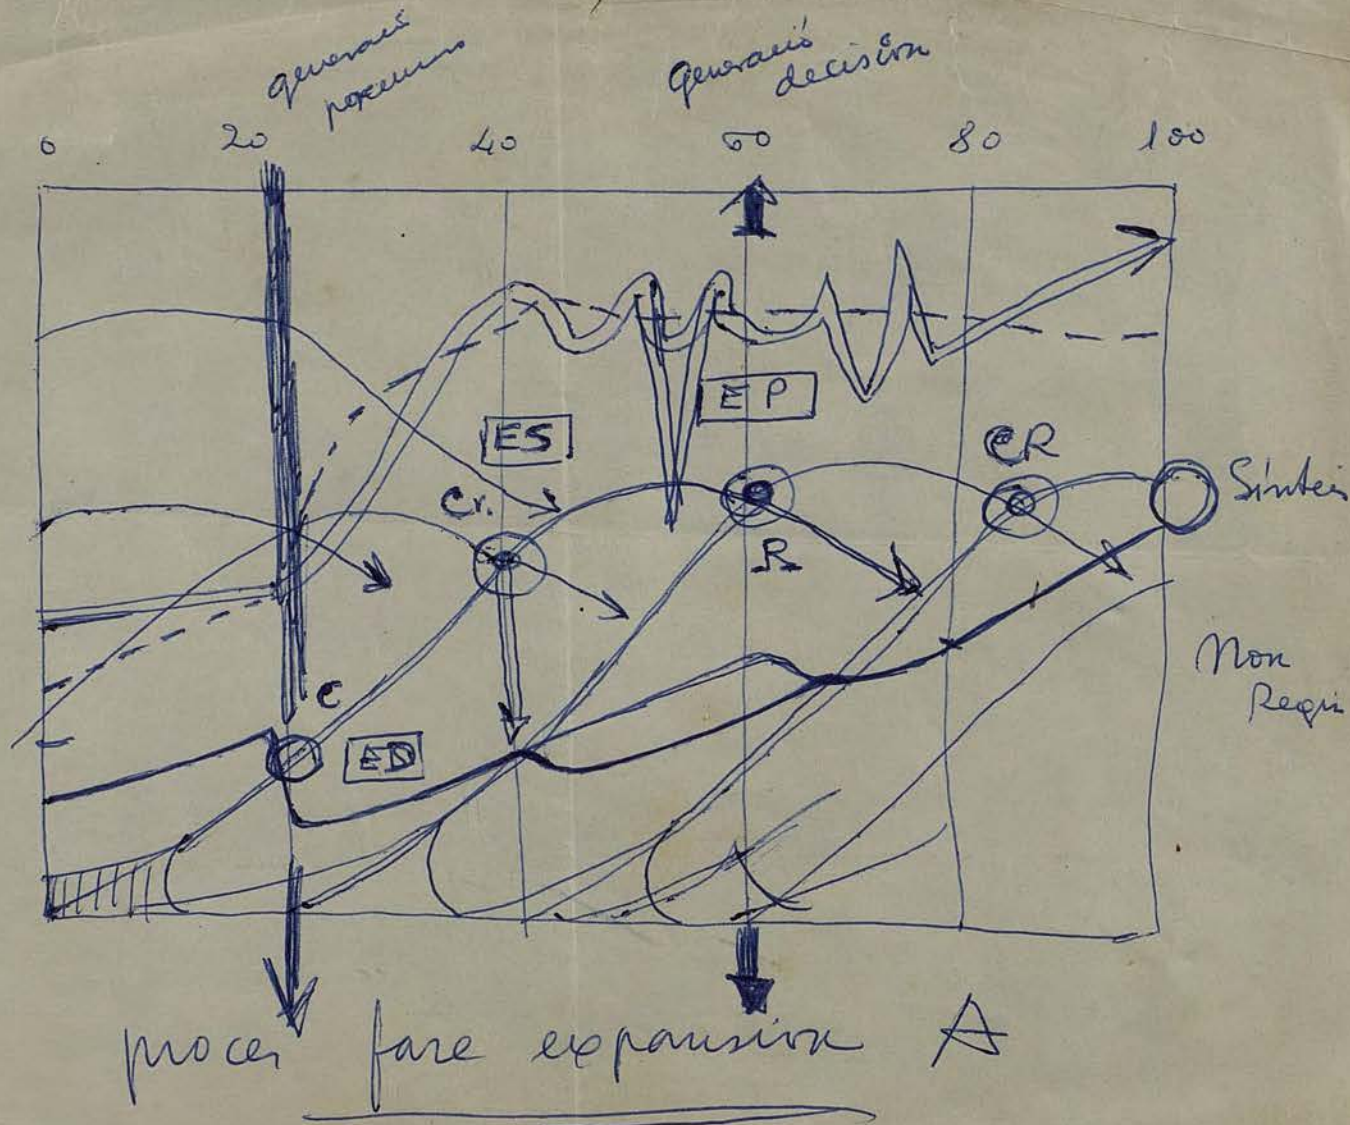 generació
Generació
decisión
0 20 40 60 80 100
ES
EP
Cr.
CR
Síntesis
R
C
ED
Non
proces fase expansión A